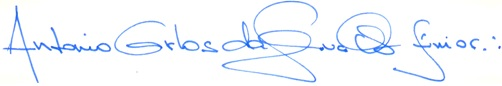 Antonio Carlos da Silva Junior.: